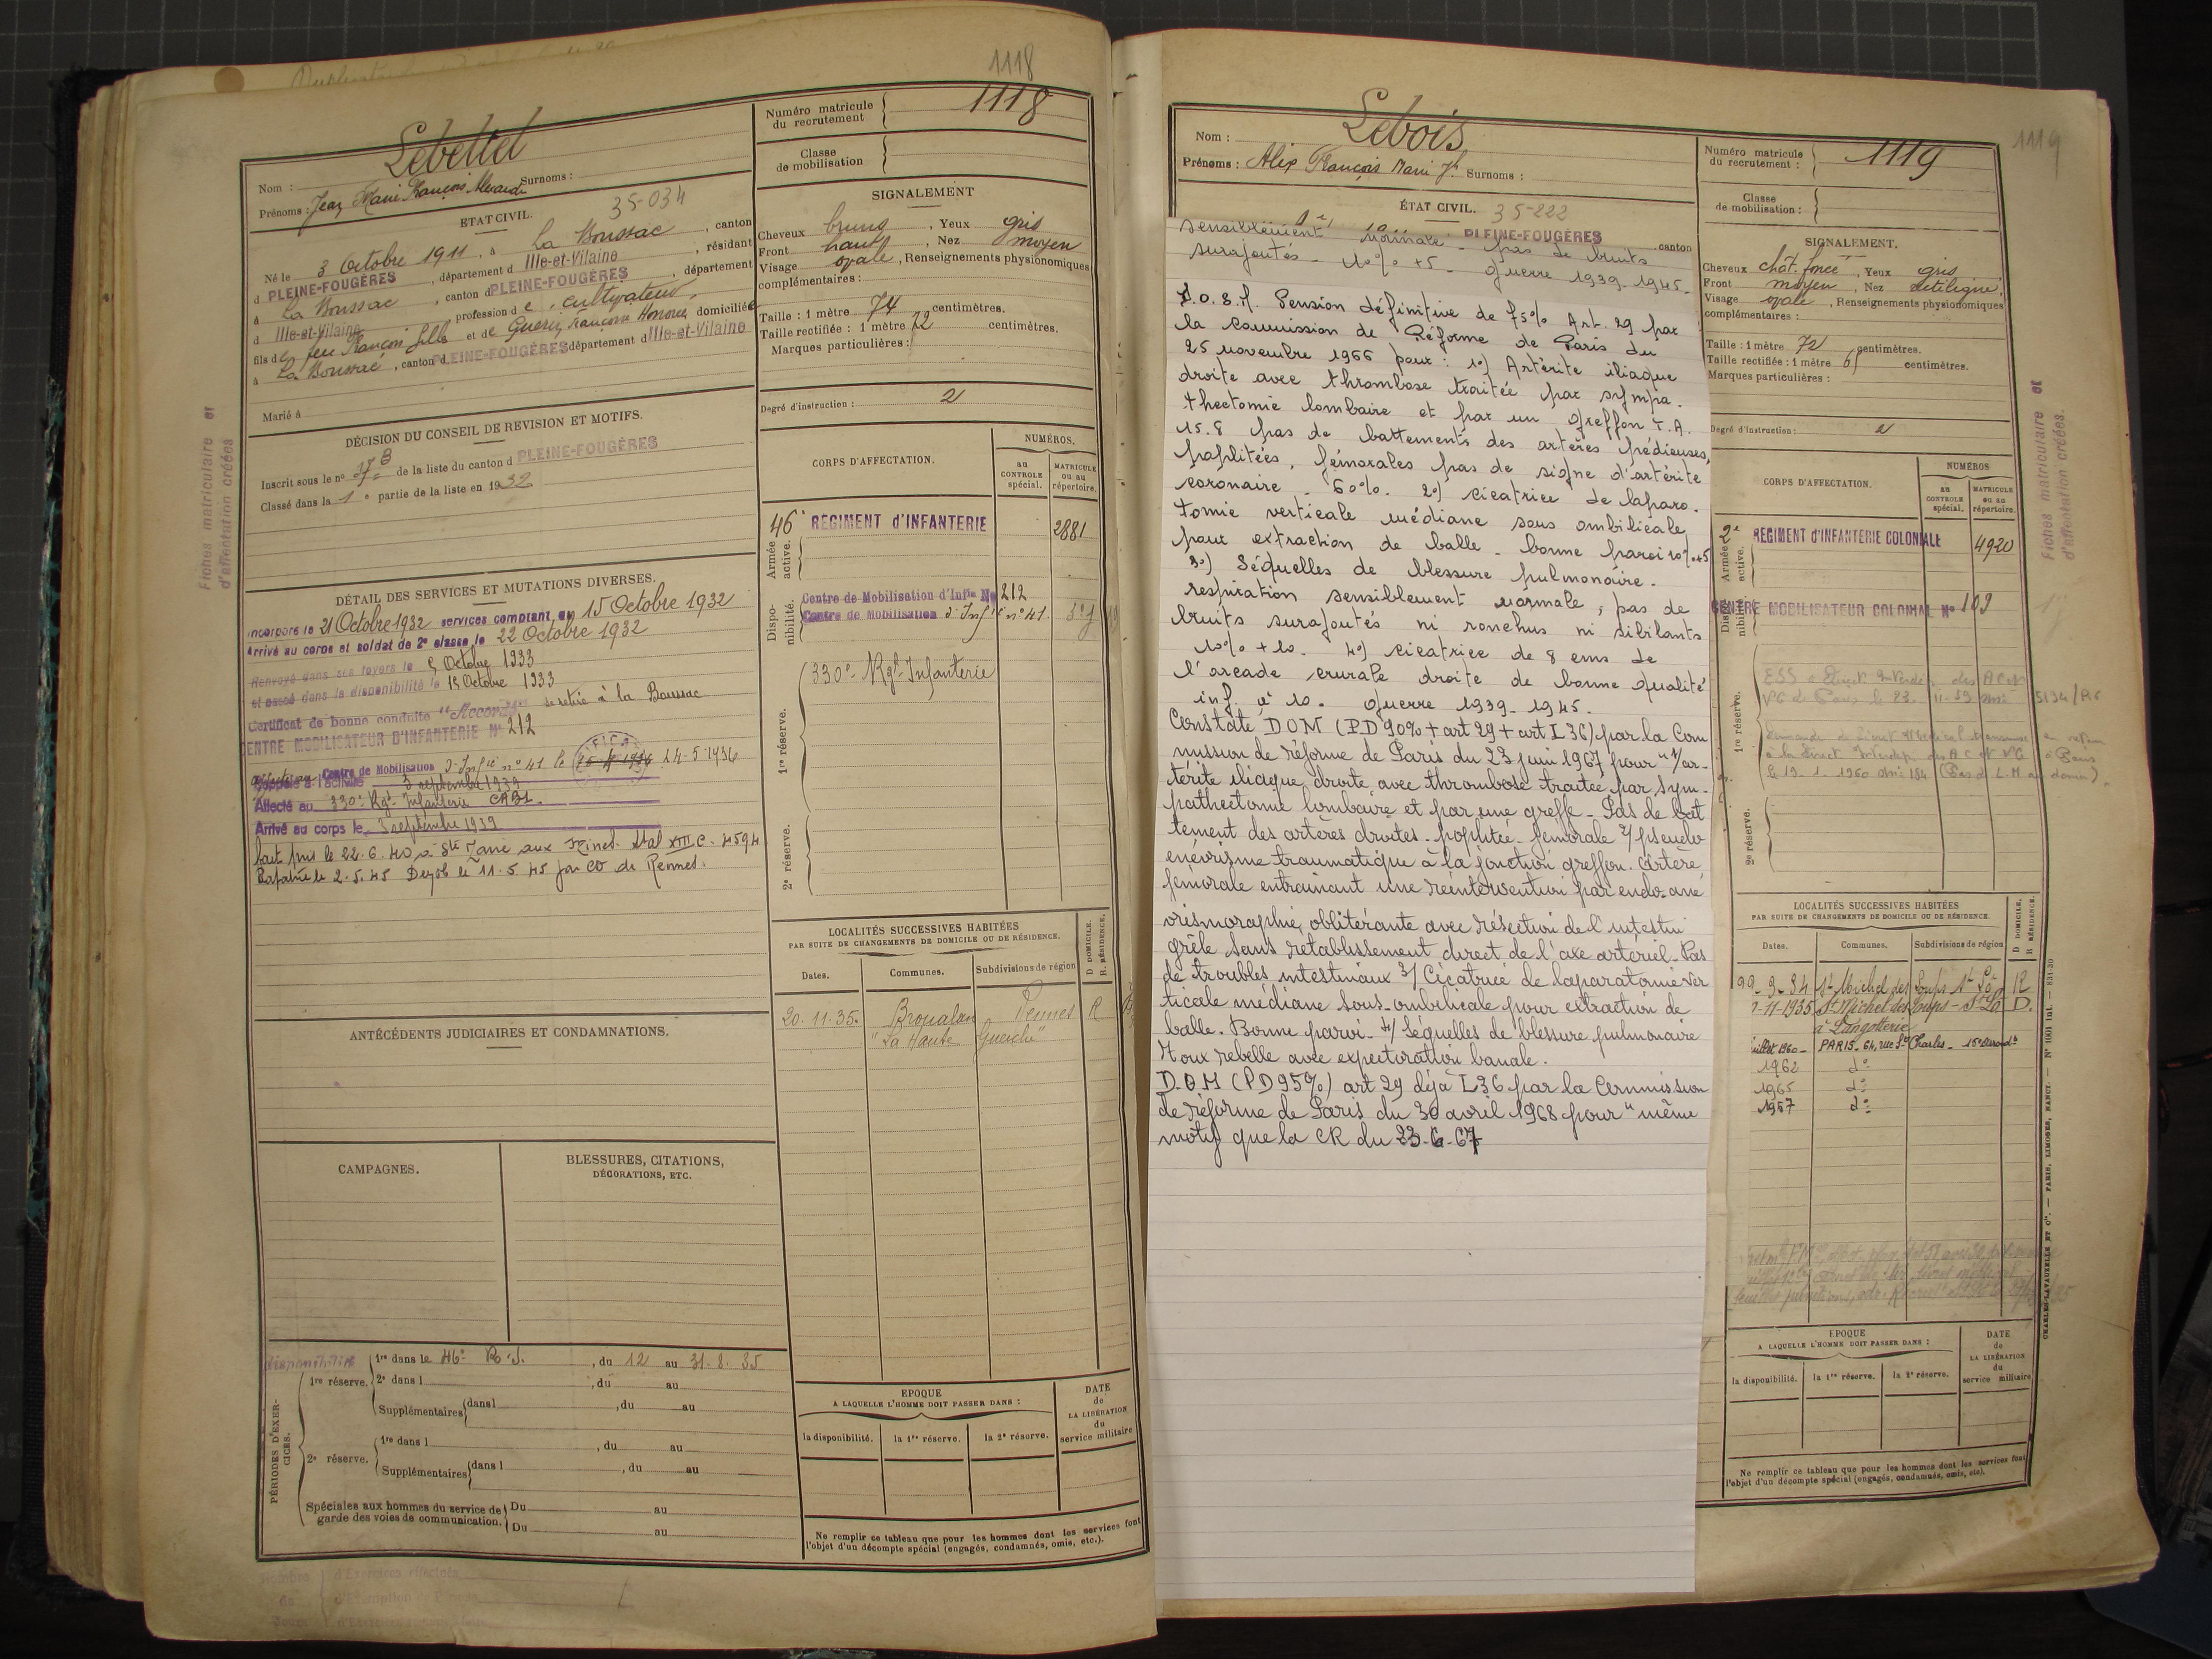 1118
Lebeltel
Nom :
Prénoms : Jean Marie François Alexandre Surnoms :
ETAT CIVIL. 35-034
Né le 3 Octobre 1911, à La Boussac, canton
d PLEINE-FOUGÈRES, département d Ille-et-Vilaine, résidant
à La Boussac, canton d PLEINE-FOUGÈRES, département
d Ille-et-Vilaine, profession de cultivateur
fils de feu François Gille et de Guerin Françoise Honorée, domiciliée
à La Boussac, canton d PLEINE-FOUGÈRES département d Ille-et-Vilaine
Marié à
DÉCISION DU CONSEIL DE REVISION ET MOTIFS.
Inscrit sous le n° de la liste du canton d PLEINE-FOUGÈRES
Classé dans la 1e partie de la liste en 1932
DÉTAIL DES SERVICES ET MUTATIONS DIVERSES.
Incorporé le 21 Octobre 1932 services comptant du 15 Octobre 1932
Arrivé au corps et soldat de 2e classe le 22 Octobre 1932
Renvoyé dans ses foyers le 5 Octobre 1933
et passé dans la disponibilité le 15 Octobre 1933
Certificat de bonne conduite "Accordé" se retire à la Boussac
CENTRE MOBILISATEUR D'INFANTERIE N° 212
Affecté au Centre de Mobilisation d'Infie n° 41 le 14-5-1936
Rappelé à l'activité 3 septembre 1939
Affecté au 330e Rgt Infanterie
Arrivé au corps le 3 septembre 1939
fait pris le 22.6.40 à Ste Marie aux Mines. Stal XIII C. 4594
Rapatrié le 2.5.45 Demob le 11.5.45 par CD de Rennes.
ANTÉCÉDENTS JUDICIAIRES ET CONDAMNATIONS.
CAMPAGNES.
BLESSURES, CITATIONS,
DÉCORATIONS, ETC.
PÉRIODES D'EXERCICES.
disponibilité
1re réserve.
1re dans le 46e R.I., du 12 au 31.8.35
2e dans l , du au
Supplémentaires dans l , du au
2e réserve.
1re dans l , du au
Supplémentaires dans l , du au
Spéciales aux hommes du service de
garde des voies de communication.
Du au
Du au
Numéro matricule
du recrutement
1118
Classe
de mobilisation
SIGNALEMENT
Cheveux bruns, Yeux gris
Front haut, Nez moyen
Visage ovale, Renseignements physionomiques
complémentaires :
Taille : 1 mètre 74 centimètres.
Taille rectifiée : 1 mètre 72 centimètres.
Marques particulières :
Degré d'instruction : 2
CORPS D'AFFECTATION.
NUMÉROS.
au
CONTROLE
spécial.
MATRICULE
ou au
répertoire.
Armée active.
46e REGIMENT d'INFANTERIE 2881
Disponibilité.
Centre de Mobilisation d'Infie N° 212
Centre de Mobilisation d'Infie n° 41.
1re réserve.
330e Rgt Infanterie
2e réserve.
LOCALITÉS SUCCESSIVES HABITÉES
PAR SUITE DE CHANGEMENTS DE DOMICILE OU DE RÉSIDENCE.
D DOMICILE.
R. RÉSIDENCE.
Dates. Communes. Subdivisions de région
20.11.35. Broualan Rennes R
"La Haute Guerche"
EPOQUE
A LAQUELLE L'HOMME DOIT PASSER DANS :
la disponibilité. la 1re réserve. la 2e réserve.
DATE
de
LA LIBÉRATION
du
service militaire
Ne remplir ce tableau que pour les hommes dont les services font
l'objet d'un décompte spécial (engagés, condamnés, omis, etc.).
Fiches matriculaire et
d'affectation créées
1119
Nom : Lebois
Prénoms : Alix François Marie Jh Surnoms :
ÉTAT CIVIL. 35-222
PLEINE-FOUGÈRES canton
sensiblement normale - pas de bruits
surajoutés - 10% +5 - guerre 1939-1945.
Pension définitive de 75% Art. 29 par
la Commission de Réforme de Paris du
25 novembre 1966 pour : 1°) Artérite iliaque
droite avec thrombose traitée par sympa-
thectomie lombaire et par un greffon T.A.
15.8 pas de battements des artères pédieuses,
poplitées, fémorales pas de signe d'artérite
coronaire - 60%. 2°) cicatrice de laparo-
tomie verticale médiane sous ombilicale
pour extraction de balle - bonne paroi 10% +5
3°) Séquelles de blessure pulmonaire -
respiration sensiblement normale, pas de
bruits surajoutés ni ronchus ni sibilants
10% + 10. 4°) cicatrice de 8 cms de
l'arcade crurale droite de bonne qualité
inf. à 10. guerre 1939-1945.
Constate DOM (PD 90% + art 29 + art L 36) par la Com
mission de réforme de Paris du 23 juin 1967 pour "1/ ar-
térite iliaque droite avec thrombose traitée par sym-
pathectomie lombaire et par une greffe - Pas de bat
tement des artères droites - poplitée - fémorale 2/ pseudo
enévrisme traumatique à la jonction greffon - artère
fémorale entrainant une réintervention par endo-ané
vrismoraphie oblitérante avec résection de l'intestin
grêle sans rétablissement direct de l'axe artériel - Pas
de troubles intestinaux 3/ Cicatrice de laparatomie ver
ticale médiane sous-ombilicale pour extraction de
balle - Bonne paroi - 4/ Séquelles de blessure pulmonaire
Toux rebelle avec expectoration banale.
D.O.M (PD 95%) art 29 déjà L36 par la Commission
de réforme de Paris du 30 avril 1968 pour "même
motif que la CR du 23-6-67
Numéro matricule
du recrutement :
1119
Classe
de mobilisation :
SIGNALEMENT.
Cheveux chât. foncé, Yeux gris
Front moyen, Nez rectiligne,
Visage ovale, Renseignements physionomiques
complémentaires :
Taille : 1 mètre 72 centimètres.
Taille rectifiée : 1 mètre 65 centimètres.
Marques particulières :
Degré d'instruction : 2
CORPS D'AFFECTATION.
NUMÉROS
au
CONTROLE
spécial.
MATRICULE
ou au
répertoire.
Armée active.
2e REGIMENT d'INFANTERIE COLONIALE 4920
CENTRE MOBILISATEUR COLONIAL N° 109
1re réserve.
2e réserve.
LOCALITÉS SUCCESSIVES HABITÉES
PAR SUITE DE CHANGEMENTS DE DOMICILE OU DE RÉSIDENCE.
D DOMICILE.
R RÉSIDENCE.
Dates. Communes. Subdivisions de région
St Michel des Loups St Lô R
11-1935 St Michel des Loups - St Lô D.
à l'Angotterie
juillet 1960 - PARIS - 64, rue St Charles - 15e Arrondt
1962 do
1965 do
1967 do
EPOQUE
A LAQUELLE L'HOMME DOIT PASSER DANS :
la disponibilité. la 1re réserve. la 2e réserve.
DATE
de
LA LIBÉRATION
du
service militaire
Ne remplir ce tableau que pour les hommes dont les services font
l'objet d'un décompte spécial (engagés, condamnés, omis, etc).
Fiches matriculaire et
d'affectation créées.
CHARLES-LAVAUZELLE ET Cie. — PARIS, LIMOGES, NANCY.